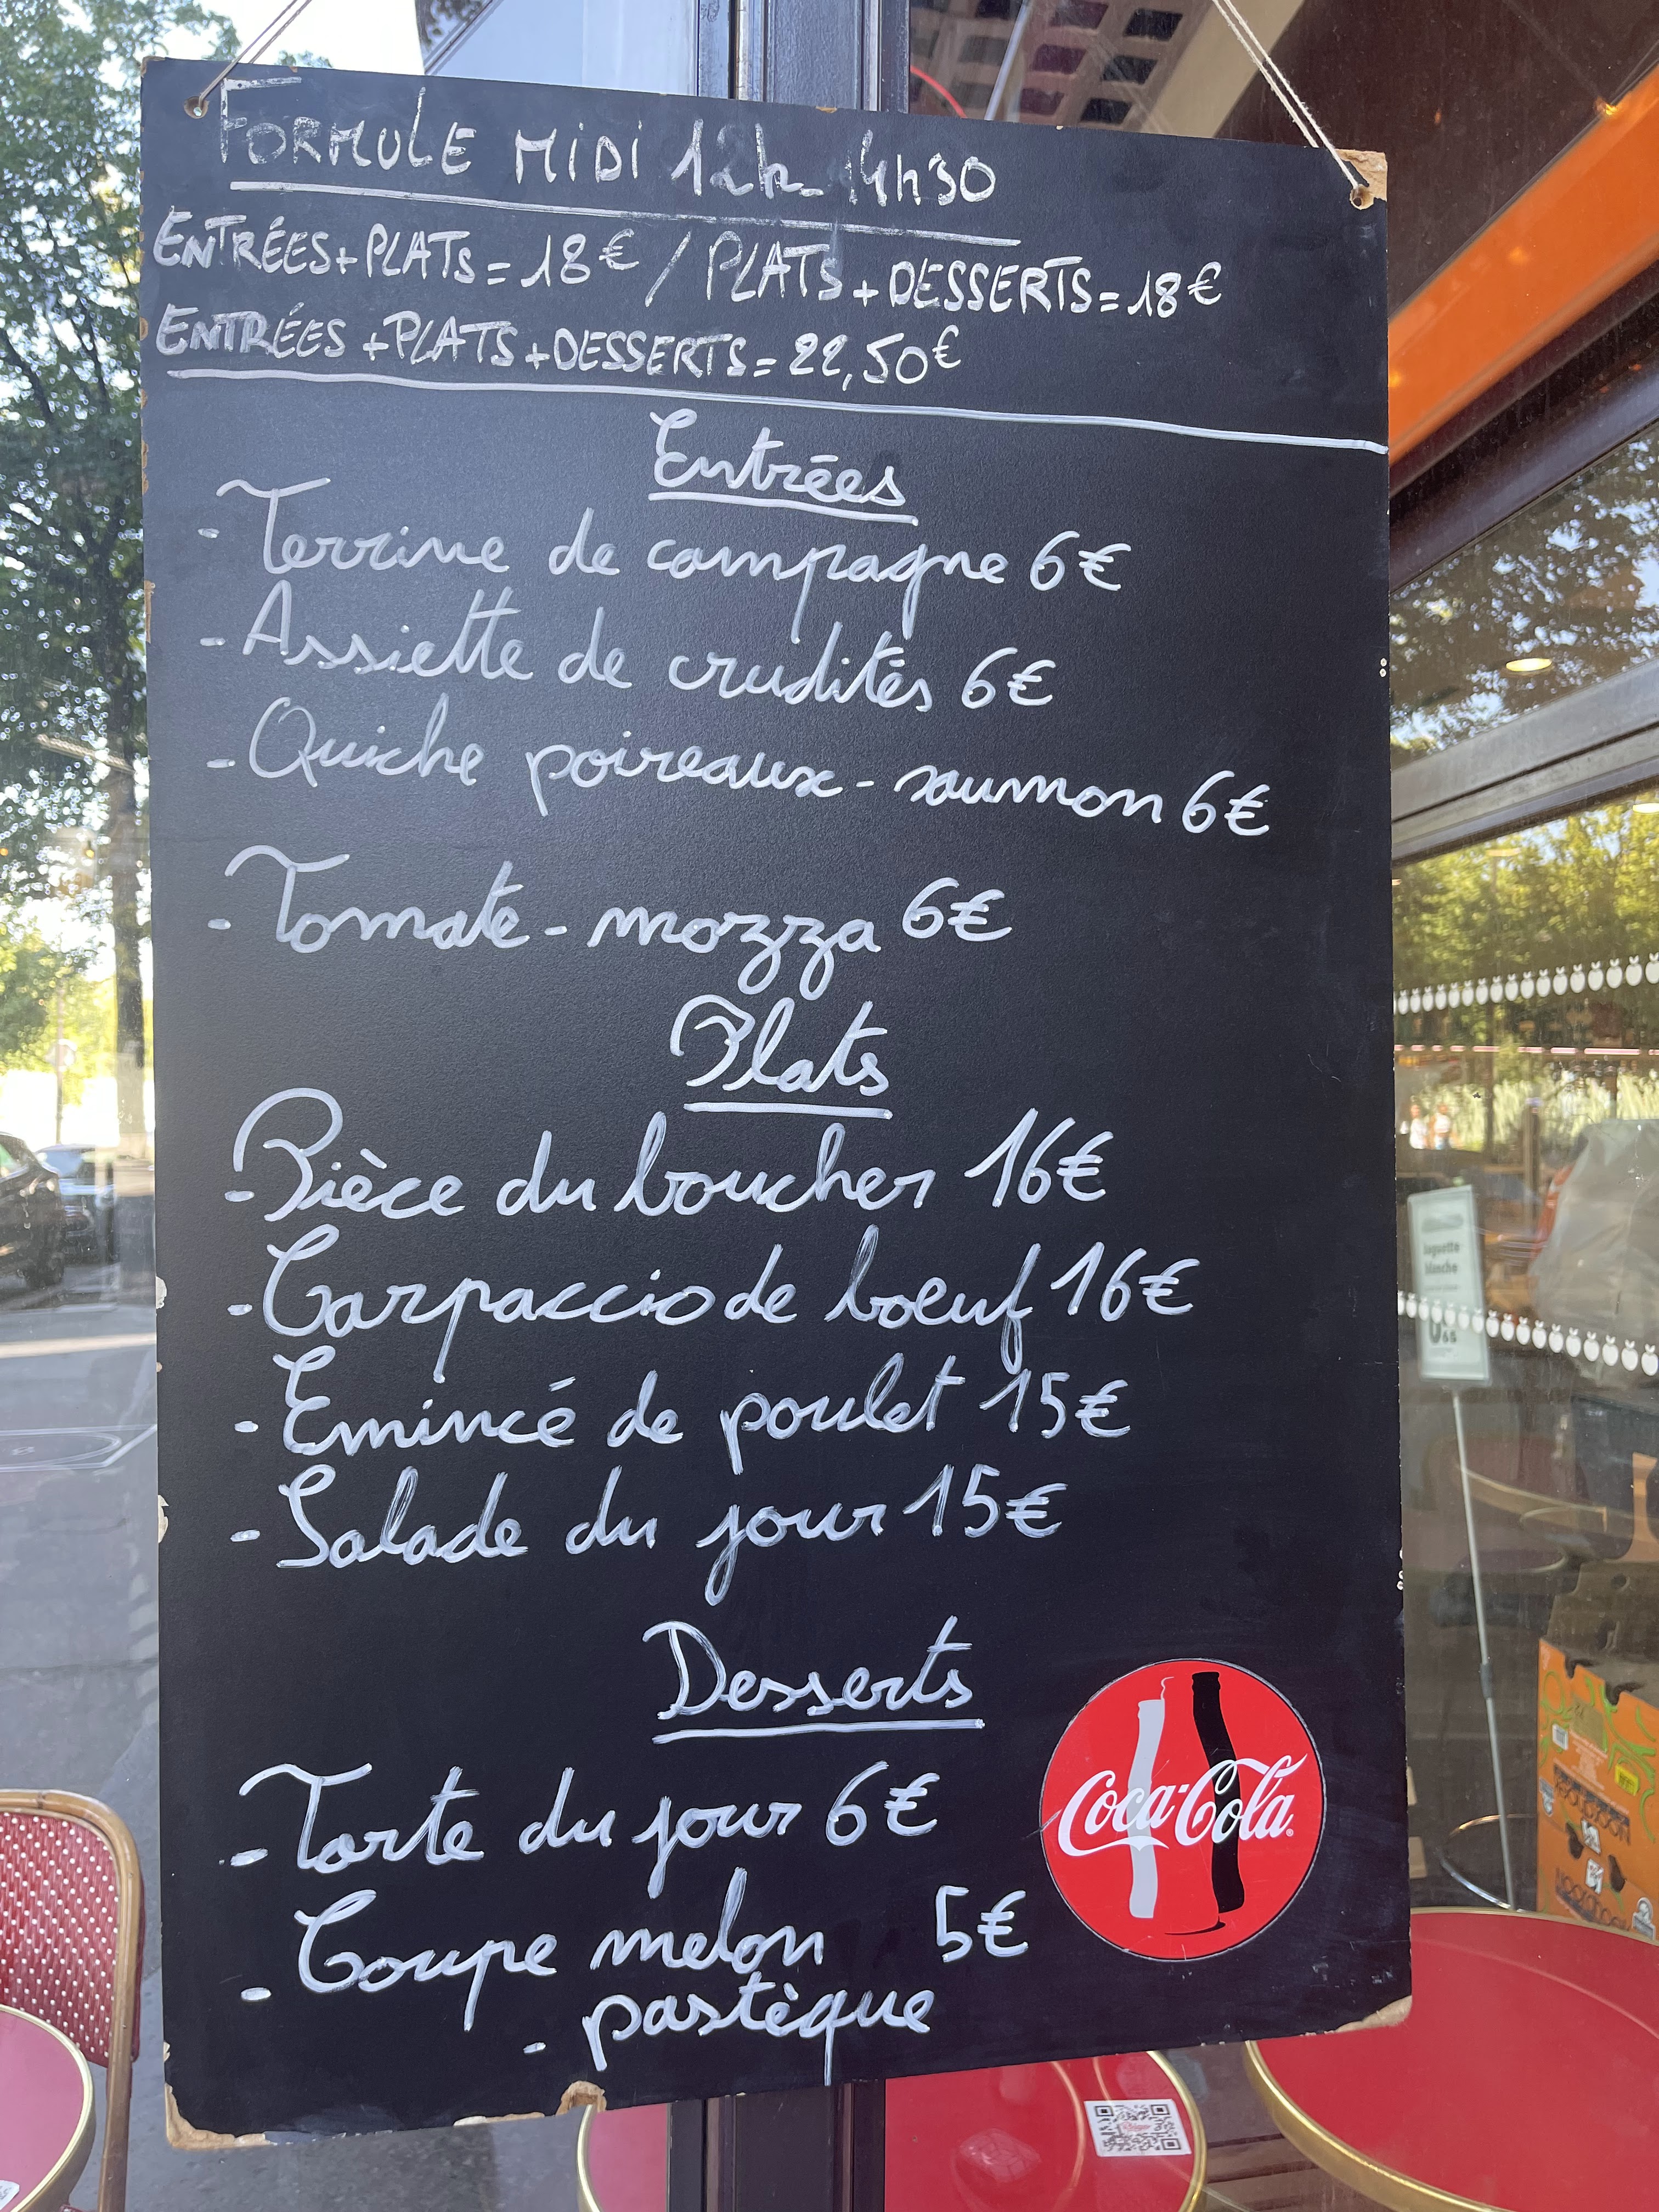 FORMULE MIDI 12h-14h30
ENTRÉES+PLATS=18€ / PLATS+DESSERTS=18€
ENTRÉES+PLATS+DESSERTS=22,50€
Entrées
- Terrine de campagne 6€
- Assiette de crudités 6€
- Quiche poireaux-saumon 6€
- Tomate-mozza 6€
Plats
- Pièce du boucher 16€
- Carpaccio de boeuf 16€
- Emincé de poulet 15€
- Salade du jour 15€
Desserts
- Tarte du jour 6€
- Coupe melon 5€
- pastèque
Coca-Cola